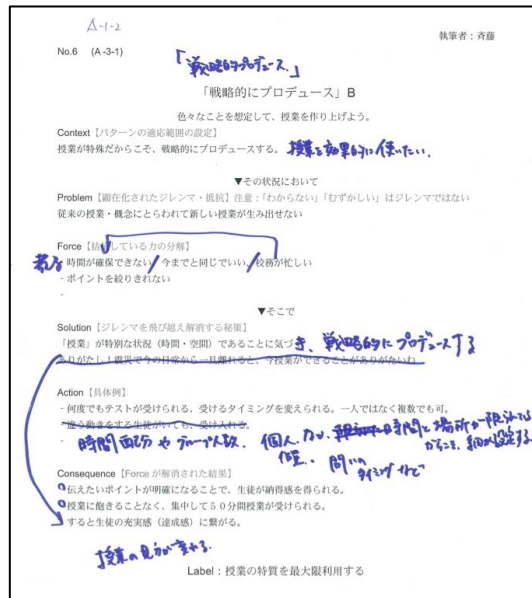 A-1-2
執筆者：斉藤
No.6 (A-3-1)
「戦略的プロデュース」
「戦略的にプロデュース」B
色々なことを想定して、授業を作り上げよう。
Context【パターンの適応範囲の設定】
授業が特殊だからこそ、戦略的にプロデュースする。 授業を効果的に使いたい。
▼その状況において
Problem【顕在化されたジレンマ・抵抗】注意：「わからない」「むずかしい」はジレンマではない
従来の授業・概念にとらわれて新しい授業が生み出せない
Force【拮抗している力の分解】
- 時間が確保できない/今までと同じでいい/校務が忙しい
- ポイントを絞りきれない
-
▼そこで
Solution【ジレンマを飛び越え解消する秘策】
「授業」が特別な状況（時間・空間）であることに気づき、戦略的にプロデュースする
ありがたし！震災で今の日常から一旦離れると、今授業ができることがありがたいわ
Action【具体例】
- 何度でもテストが受けられる、受けるタイミングを変えられる。一人ではなく複数でも可。
- 違う動きをする生徒がいても、受け入れる。
- 時間配分やグループ人数、個人
時間と場所が限られているからこそ、細かく設定する
問いのタイミングなど
Consequence【Forceが解消された結果】
伝えたいポイントが明確になることで、生徒が納得感を得られる。
授業に飽きることなく、集中して５０分間授業が受けられる。
すると生徒の充実感（達成感）に繋がる。
授業の見方が変わる。
Label：授業の特質を最大限利用する